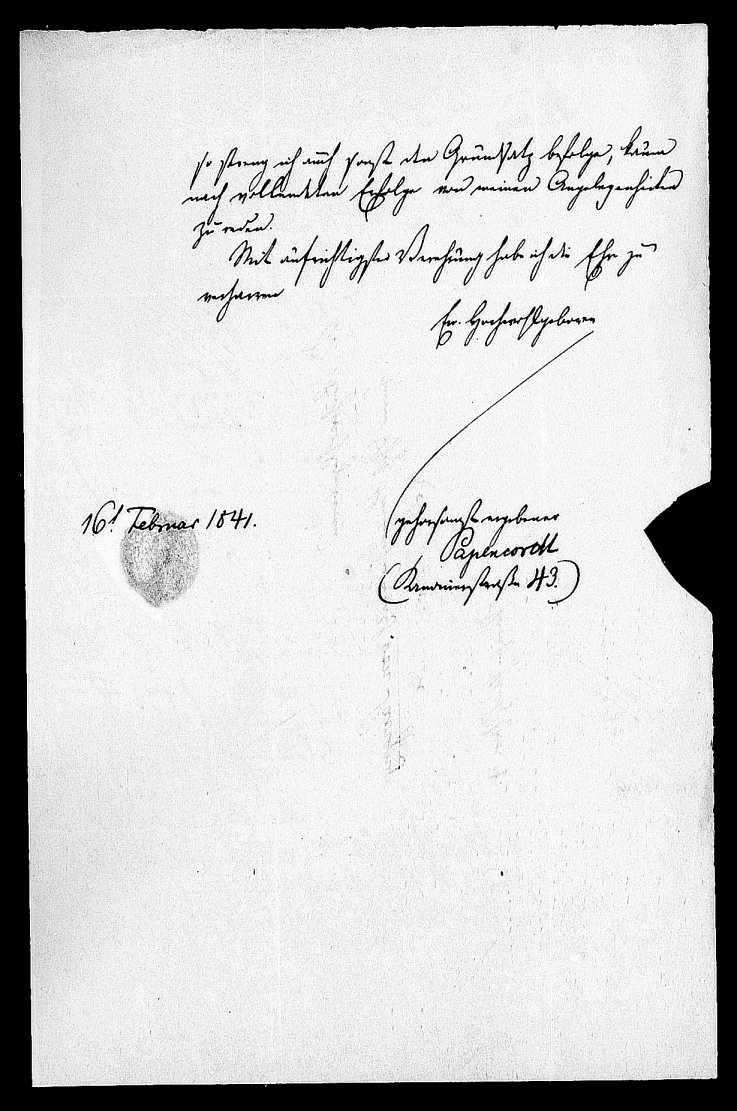 so streng ich auch sonst den Grundsatz befolge, kaum
nach vollendeten Erfolge von meinen Angelegenheiten
zu reden.
Mit aufrichtigster Verehrung habe ich die Ehre zu
verharren
Ew. Hochwohlgeboren
16t Februar 1841.
gehorsamst ergebener
Papencordt
(Kanonierstraße 43.)